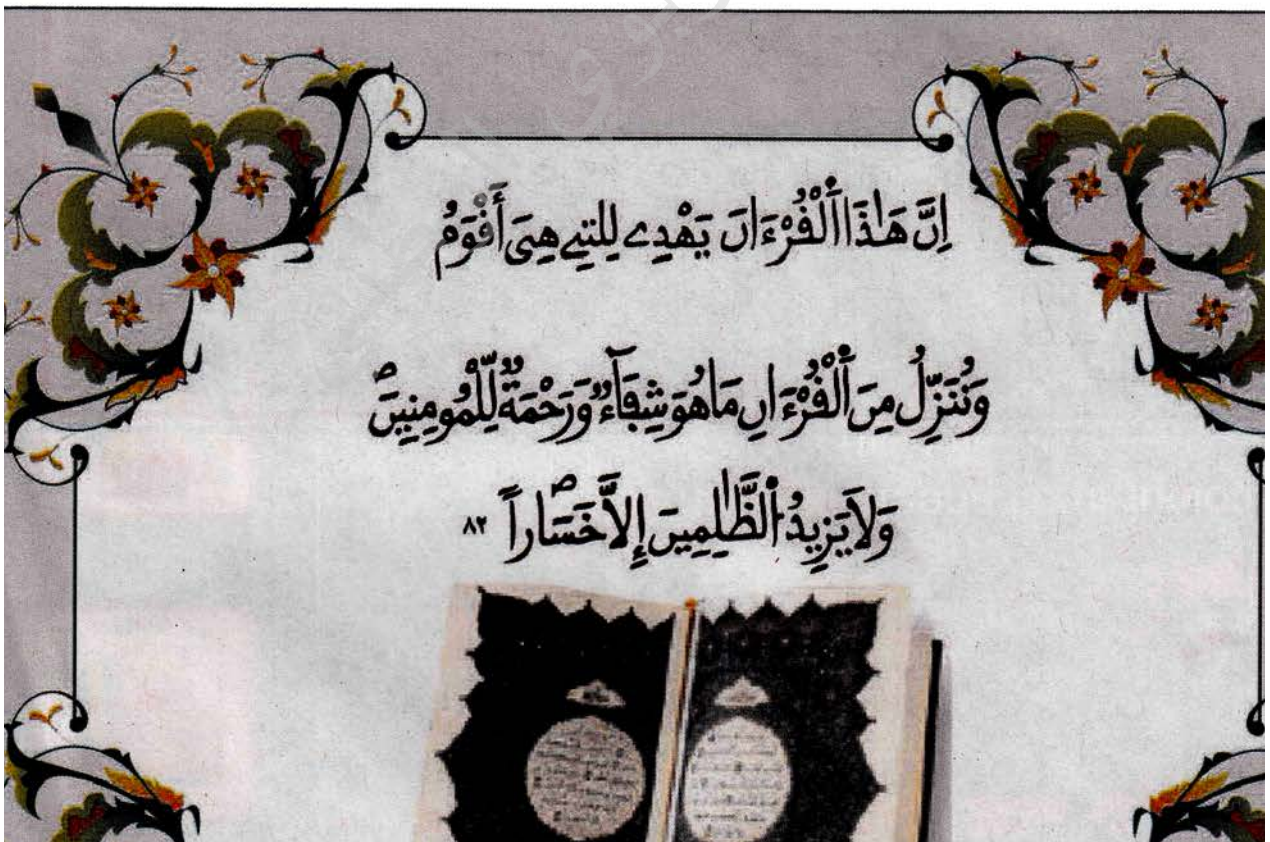 إِنَّ هَٰذَا اَ۬لْقُرْءَانَ يَهْدِے لِلتِے هِيَ أَقْوَمُ
وَنُنَزِّلُ مِنَ اَ۬لْقُرْءَانِ مَا هُوَ شِفَآءٞ وَرَحْمَةٞ لِّلْمُومِنِينَۖ
وَلَا يَزِيدُ اُ۬لظَّٰلِمِينَ إِلَّا خَسَاراٗۖ ٨٢